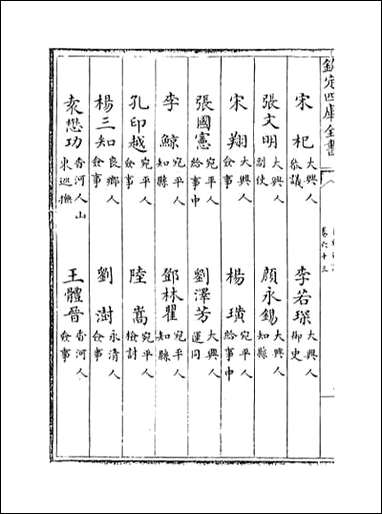 欽定四庫全書
卷六十三
宋杞 大興人 叅議
李若琛 大興人 御史
張文明 大興人 副使
顏永錫 大興人 知縣
宋翔 大興人 僉事
楊璜 宛平人 給事中
張國憲 宛平人 給事中
劉澤芳 大興人 運同
李鯨 宛平人 知縣
鄧林翟 宛平人 知縣
孔印越 宛平人 僉事
陸嵩 宛平人 檢討
楊三知 良鄉人 僉事
劉澍 永清人 僉事
袁懋功 香河人 山東巡撫
王體晉 香河人 僉事